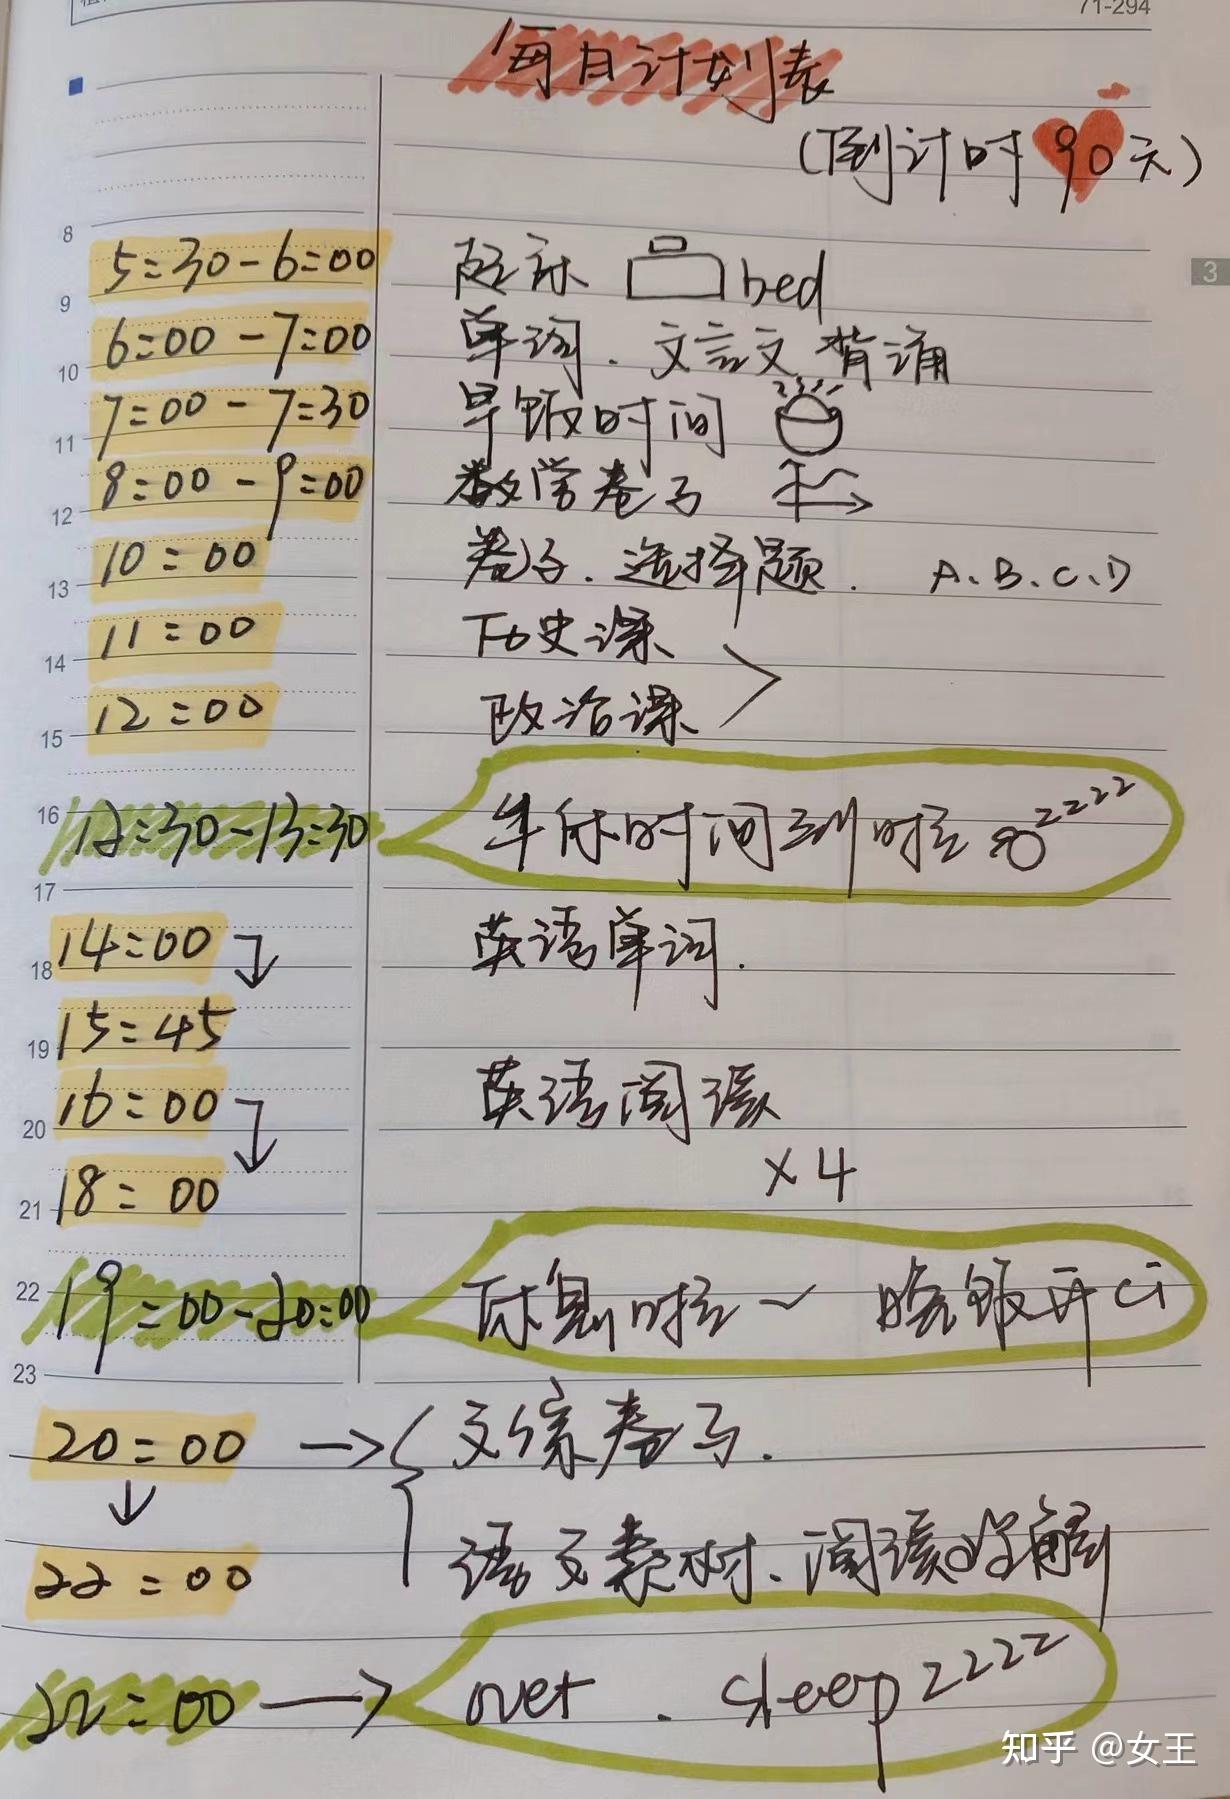 71-294
每日计划表
(倒计时90天)
3
8
5:30-6:00 起床 bed
9
6:00-7:00 单词.文言文背诵
10
7:00-7:30 早饭时间
11
8:00-9:00 数学卷子
12
10:00 卷子.选择题. A.B.C.D
13
11:00 历史课
14
12:00 政治课
15
16
12:30-13:30 午休时间到啦 zzzz
17
14:00 英语单词.
18
15:45
19
16:00 英语阅读
20
×4
18:00
21
22
19:00-20:00 休息啦~ 晚饭开ci
23
20:00 文综卷子.
语文素材、阅读理解
22:00
22:00 over. sleep zzzz
知乎 @女王